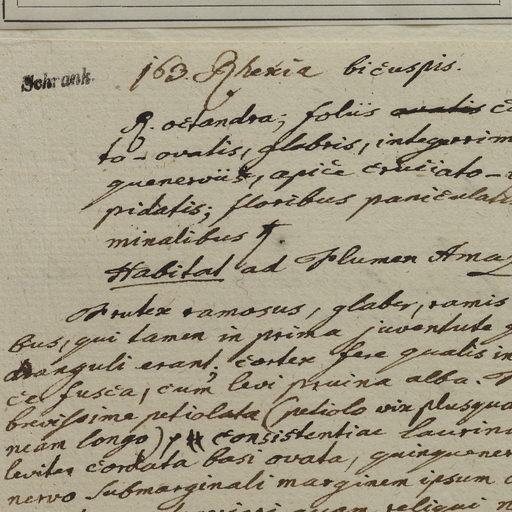 Schrank.
163. Rhexia bicuspis.
R. octandra; foliis ovatis co
to-ovatis, glabris, integerrim
quenerviis, apice cruciato-
pidatis; floribus paniculatis
minalibus †
Habitat ad Flumen Amaz
Frutex ramosus, glaber, ramis
bus, qui tamen in prima juventute
anguli erant; cortex fere qualis in
ce fusca, cum levi pruina alba.
brevissime petiolata (petiolo vix plusqua
neam longo) consistentiae laurina
leviter cordata basi ovata, quinquener
nervo submarginali marginem ipsum
quam reliqui